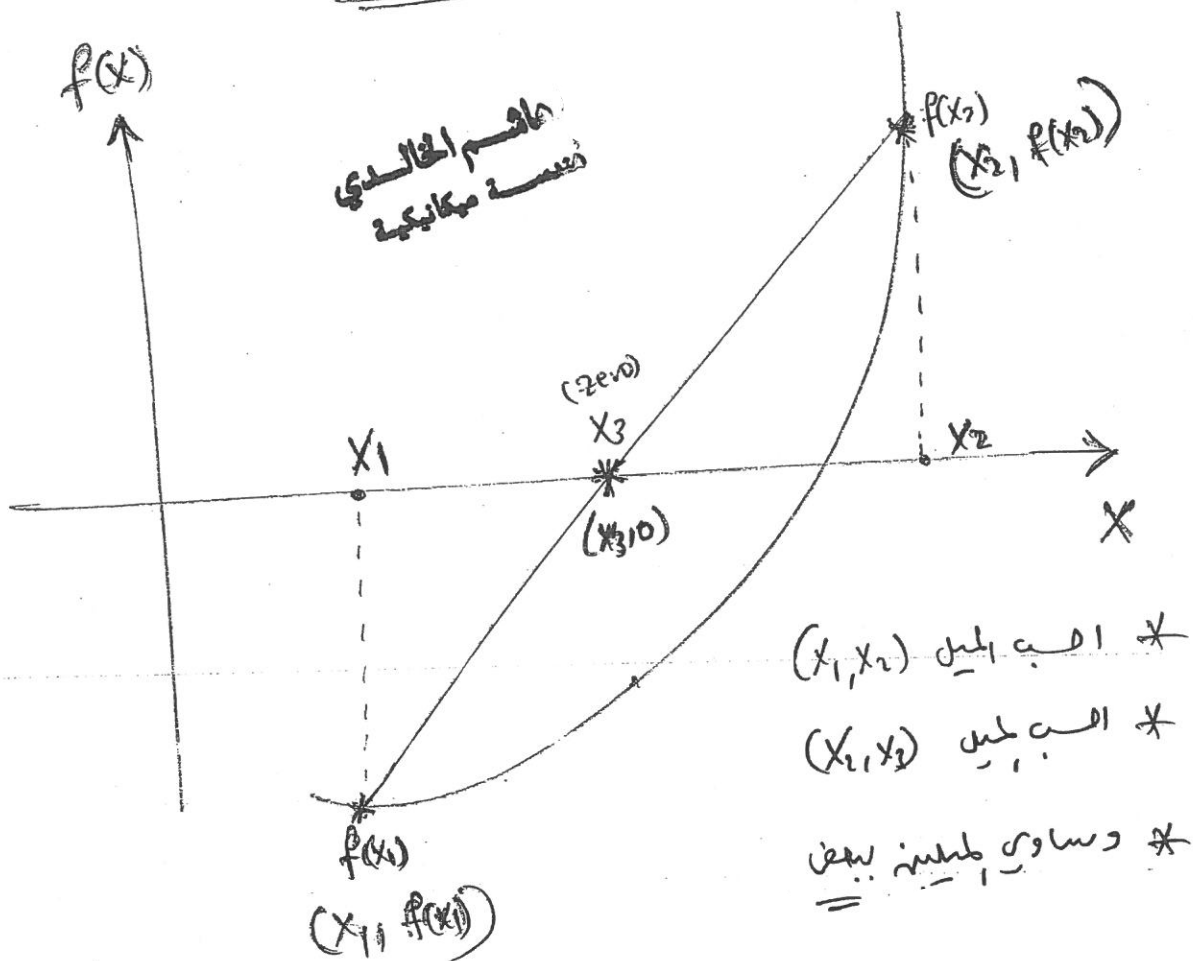 f(x)
هاشم الخالدي
هندسة ميكانيكية
f(x2)
(x2, f(x2))
(zero)
x3
x1
x2
(x3,0)
X
* احسب الميل (x1,x2)
* احسب الميل (x2,x3)
* وساوي الميلين ببعض
f(x1)
(x1, f(x1))